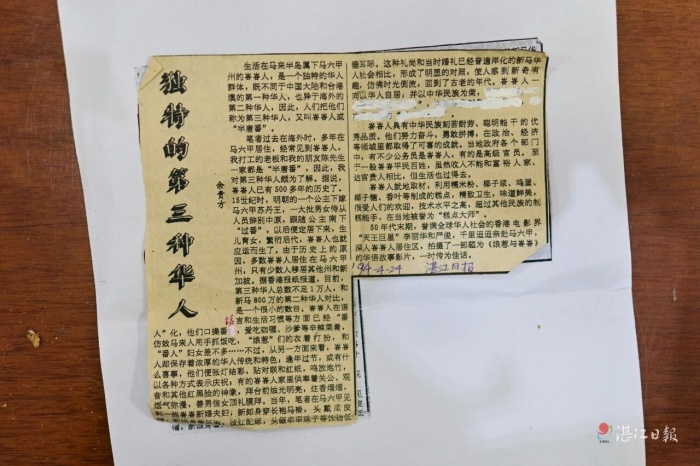 独特的第三种华人
余贵方
生活在马来半岛属下马六甲
州的峇峇人,是一个独特的华人
群体,既不同于中国大陆和台港
澳的第一种华人,也异于海外的
第二种华人,因此,人们把他们
称为第三种华人,又叫峇峇人或
“半唐番”。
笔者过去在海外时,多年在
马六甲居住,经常见到峇峇人,
我打工的老板和我的朋友陈先生
一家都是“半唐番”,因此,我
对第三种华人颇为了解。据说,
峇峇人已有500多年的历史了。
15世纪时,明朝的一个公主下嫁
马六甲苏丹王,一大批男女侍从
人员辞别中原,跟随公主南下
“过番”,以后便定居下来,生
儿育女,繁衍后代,峇峇人也就
应运而生。由于历史上的原
因,多数峇峇人居住在马六甲
州,只有少数人移居其他州和新
加坡。据香港报纸报道,目前,
第三种华人总数不足1万人,和
新马800万的第二种华人对比,
是一个很小的数目。峇峇人在语
言和生活习惯等方面已经“番
人”化,他们口操番话,爱吃咖喱、沙爹等辛辣菜肴,
仿效马来人用手抓饭吃,“娘惹”们的衣着打扮,和
“番人”妇女差不多……不过,从另一方面来看,峇峇
人却保存着浓厚的华人传统和特色:逢年过节,或有什
么喜事,他们便张灯结彩,贴对联和红纸,鸣放炮竹,
以各种方式表示庆祝;有的峇峇人家里供奉着关公、观
音和其他红黑脸的神像,拜台前烛光明亮,炷香熠熠,
烟气弥漫,善男信女顶礼膜拜。当年,笔者在马六甲见
峇峇新婚夫妇,新郎身穿长袍马褂,头戴瓜皮
帽,新娘
珊瑚。这种礼尚和当时婚礼已经普遍洋化的新马华
人社会相比,形成了明显的对照,使人感到新奇有
趣,仿佛时光倒流,回到了古老的年代。峇峇人一
向以华人自居,并以中华民族为荣,
峇峇人具有中华民族刻苦耐劳、聪明能干的优
秀品质。他们努力奋斗,勇敢拼搏,在政治、经济
等领域里都取得了可喜的成就。当地政府各个部门
中,有不少公务员是峇峇人,有的是高级官员。至
于一般峇峇平民百姓,虽然收入不能和富裕人家、
达官贵人相比,但生活也过得去。
峇峇人就地取材,利用糯米粉、椰子浆、鸡蛋、
椰子糖、香叶等制成的糕点,精致卫生,味道鲜美,
很受人们的欢迎,技术水平之高,超过其他民族的制
糕能手,在当地被誉为“糕点大师”。
50年代末期,誉满全球华人社会的香港电影界
“天王巨星”李丽华和严俊,千里迢迢奔赴马六甲,
深入峇峇人居住区,拍摄了一部题为《娘惹与峇峇》
的华语故事影片,一时传为佳话。
'94-4-24 湛江日报
湛江日报